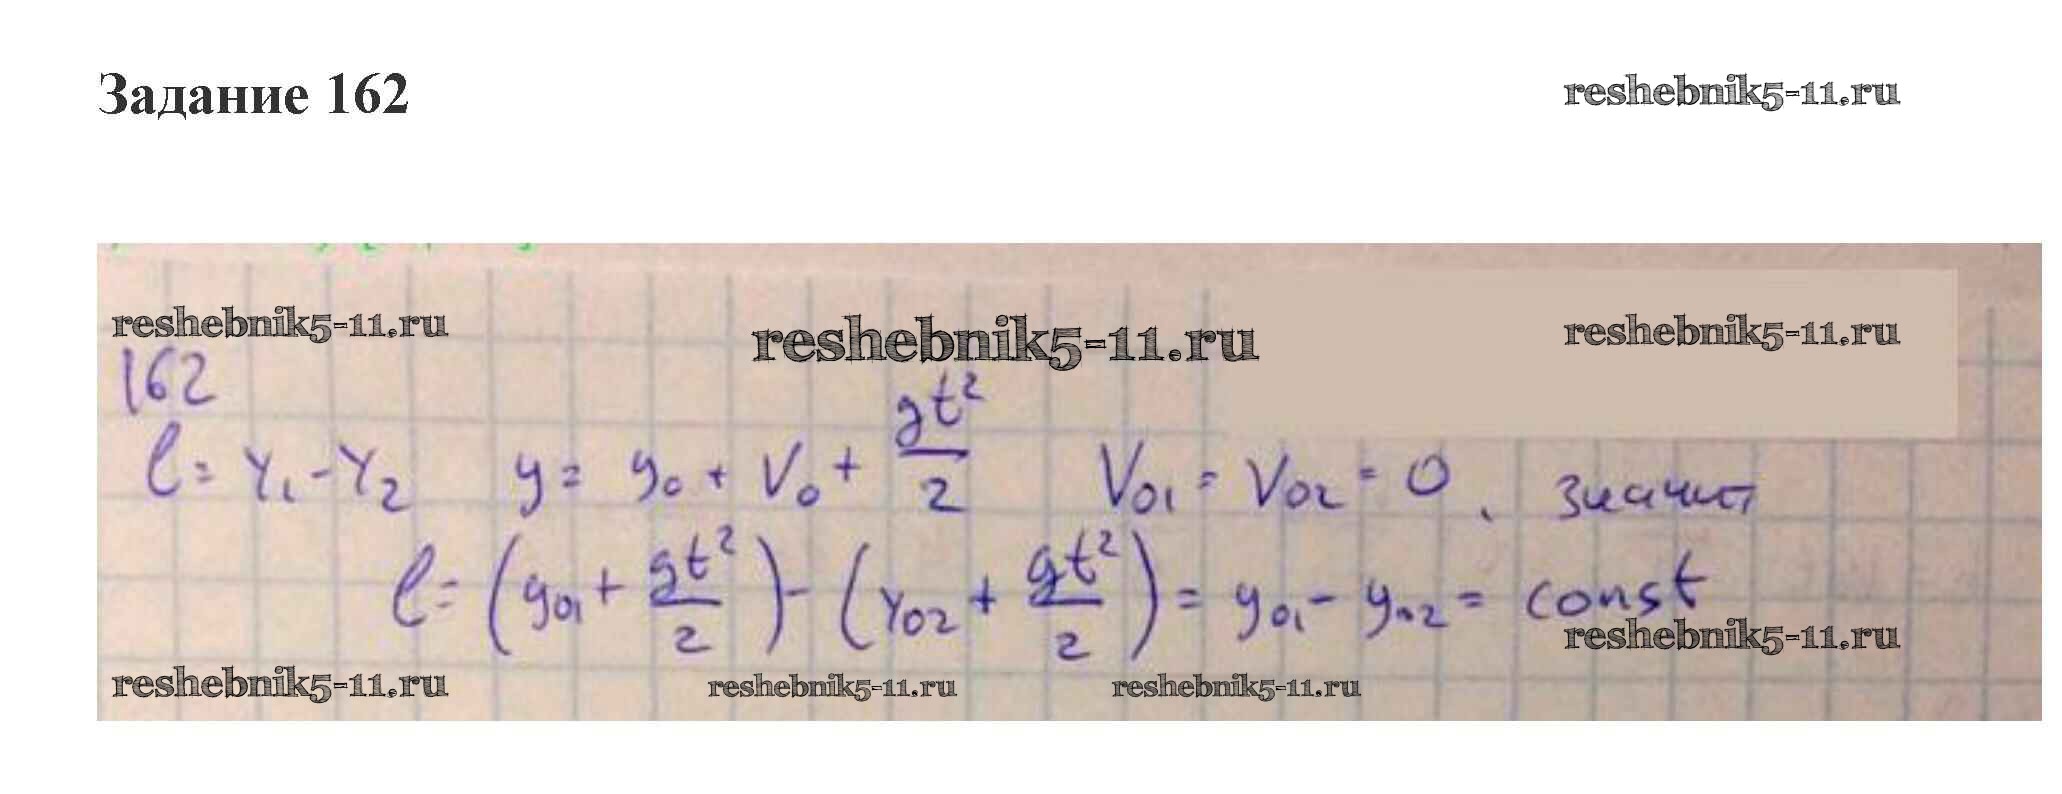 Задание 162
reshebnik5-11.ru
reshebnik5-11.ru
reshebnik5-11.ru
reshebnik5-11.ru
162
l = Y₁ - Y₂   y = y₀ + V₀ + gt²/2   V₀₁ = V₀₂ = 0, значит
l = (y₀₁ + gt²/2) - (y₀₂ + gt²/2) = y₀₁ - y₀₂ = const
reshebnik5-11.ru
reshebnik5-11.ru
reshebnik5-11.ru
reshebnik5-11.ru